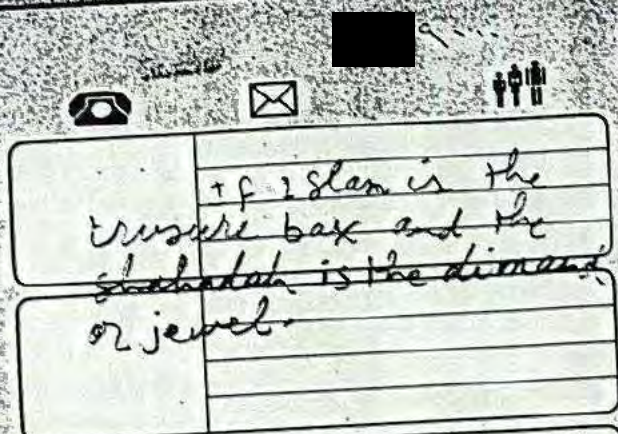 If Islam is the
trusure box and the
shahadah is the dimand
or jewel.